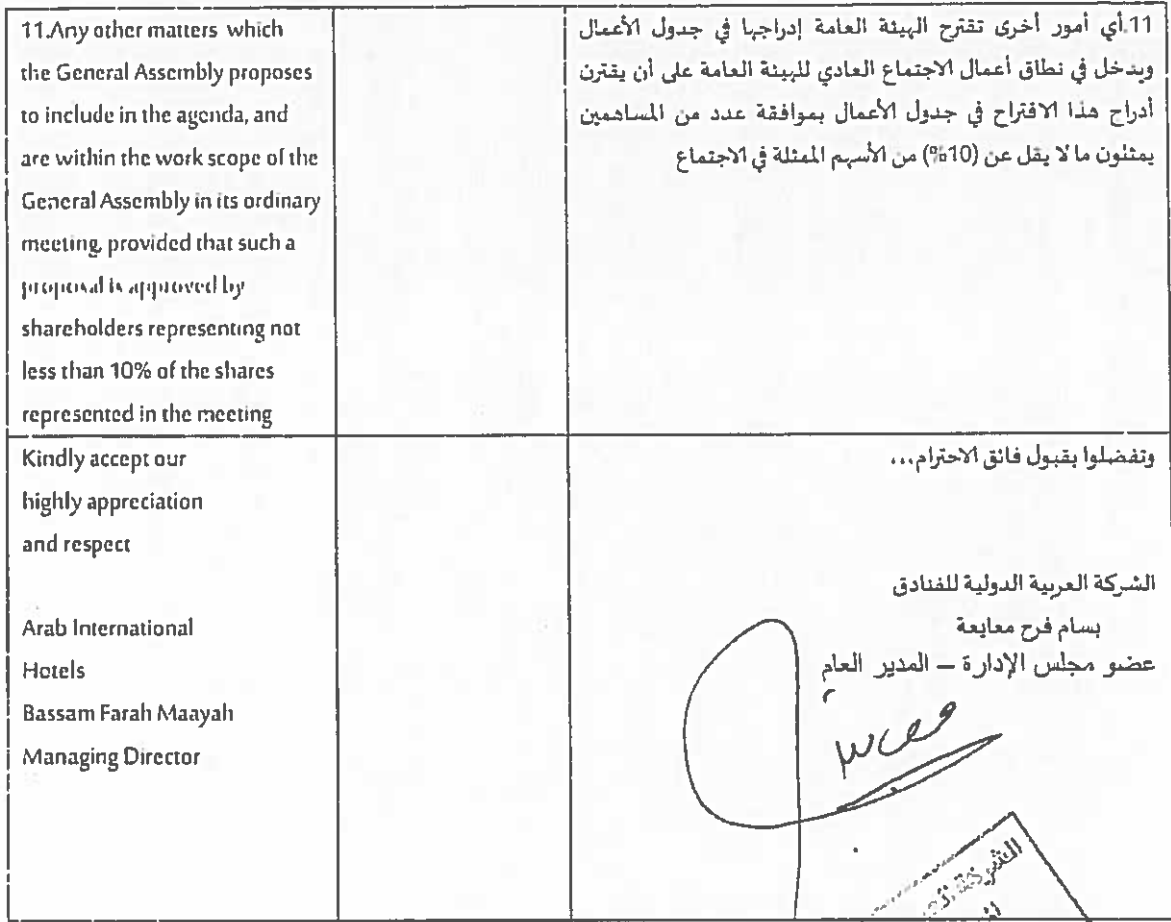 11.Any other matters which
the General Assembly proposes
to include in the agenda, and
are within the work scope of the
General Assembly in its ordinary
meeting, provided that such a
proposal is approved by
shareholders representing not
less than 10% of the shares
represented in the meeting
11.أي أمور أخرى تقترح الهيئة العامة إدراجها في جدول الأعمال
ويدخل في نطاق أعمال الاجتماع العادي للهيئة العامة على أن يقترن
أدراج هذا الاقتراح في جدول الأعمال بموافقة عدد من المساهمين
يمثلون ما لا يقل عن (10%) من الأسهم الممثلة في الاجتماع
Kindly accept our
highly appreciation
and respect
Arab International
Hotels
Bassam Farah Maayah
Managing Director
وتفضلوا بقبول فائق الاحترام...
الشركة العربية الدولية للفنادق
بسام فرح معايعة
عضو مجلس الإدارة – المدير العام
الشركة